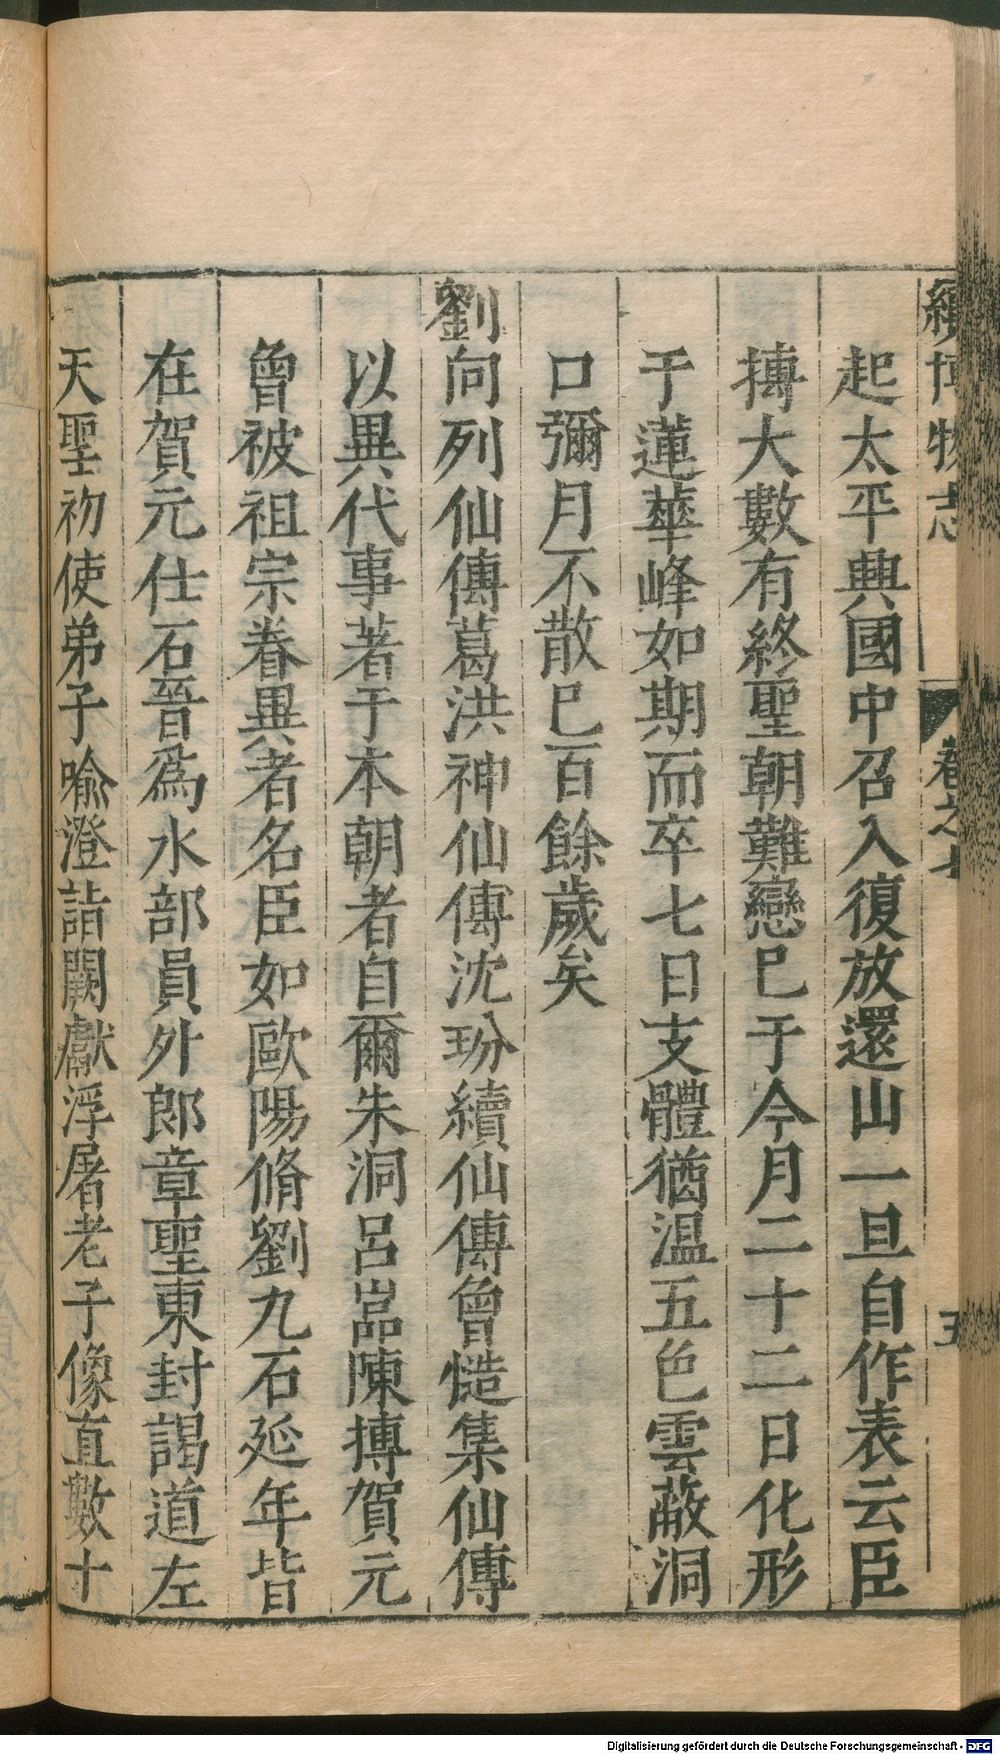 續博物志 卷之七 五
起太平興國中召入復放還山一旦自作表云臣
摶大數有終聖朝難戀已于今月二十二日化形
于蓮華峰如期而卒七日支體猶温五色雲蔽洞
口彌月不散已百餘歲矣
劉向列仙傳葛洪神仙傳沈玢續仙傳曾慥集仙傳
以異代事著于本朝者自爾朱洞呂嵓陳摶賀元
曾被祖宗眷異者名臣如歐陽脩劉九石延年皆
在賀元仕石晉爲水部員外郎章聖東封謁道左
天聖初使弟子喻澄詣闕獻浮屠老子像直數十
Digitalisierung gefördert durch die Deutsche Forschungsgemeinschaft - DFG